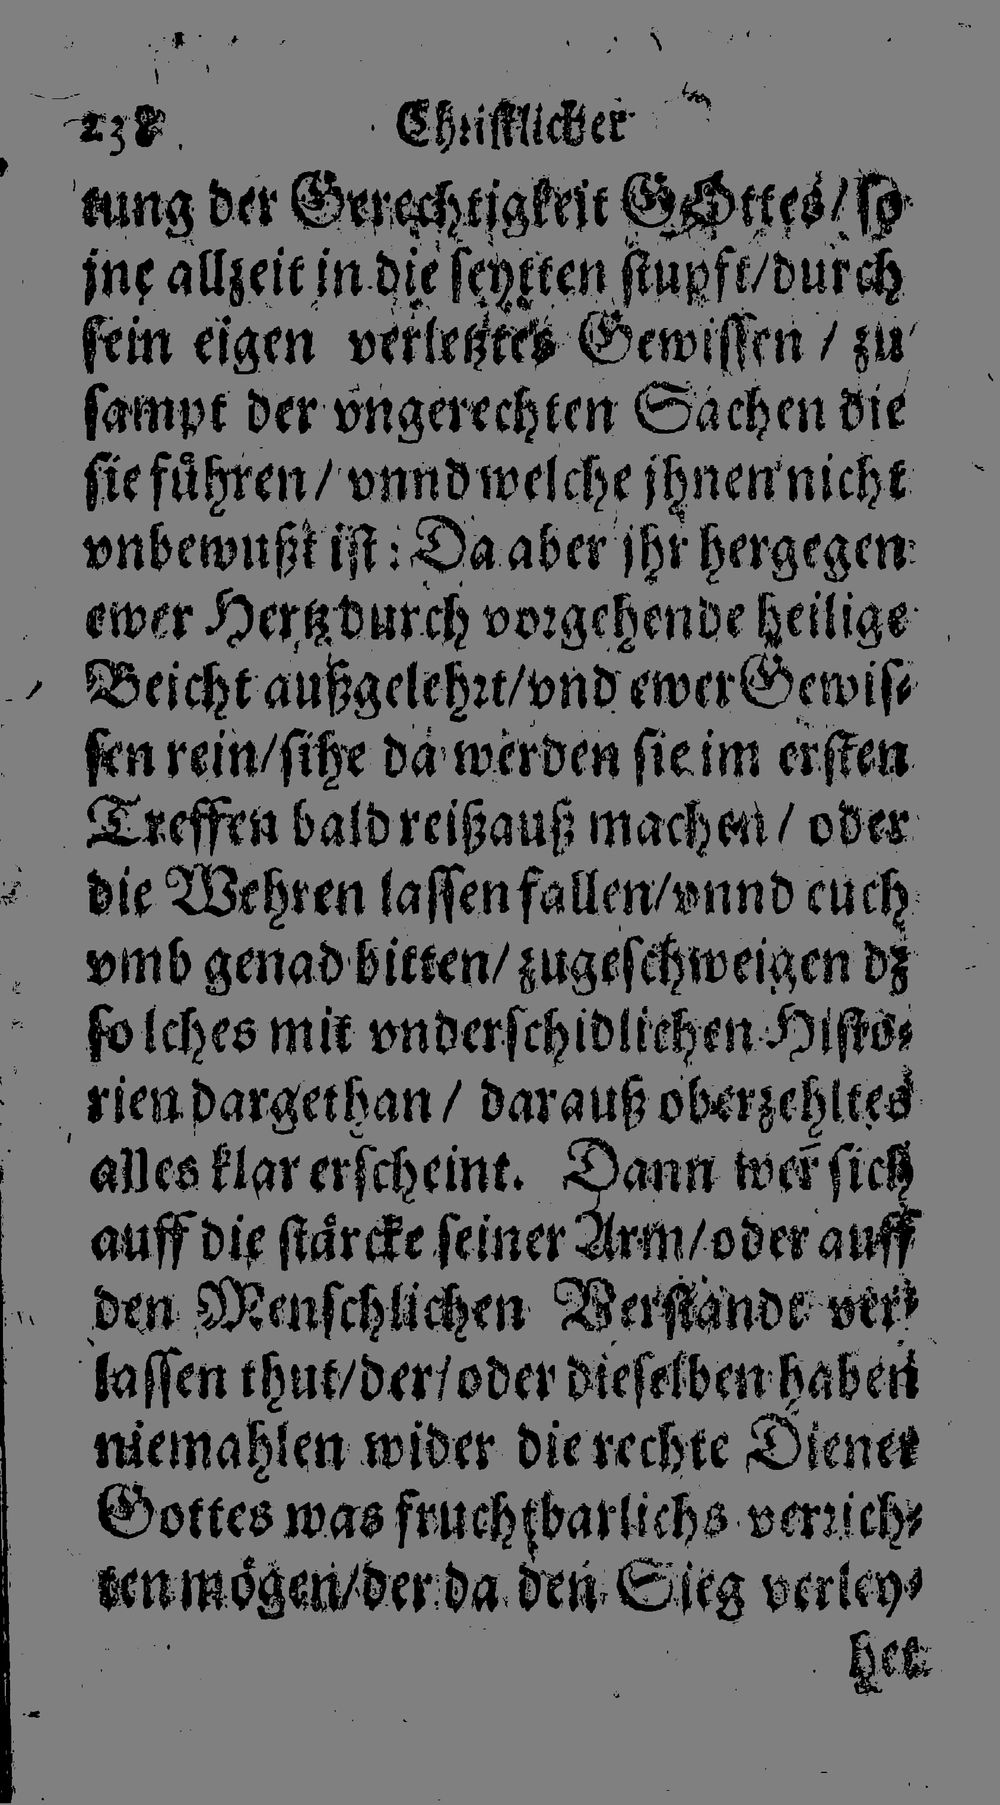 238 Christlicher
tung der Gerechtigkeit GOttes/ so
jne allzeit in die seytten stupft/durch
sein eigen verletztes Gewissen / zu
sampt der vngerechten Sachen die
sie führen/ vnnd welche jhnen nicht
vnbewußt ist: Da aber jhr hergegen
ewer Hertz durch vorgehende heilige
Beicht außgelehrt/vnd ewer Gewis-
sen rein/sihe da werden sie im ersten
Treffen bald reißauß machen/ oder
die Wehren lassen fallen/vnnd euch
vmb genad bitten/ zugeschweigen dz
solches mit vnderschidlichen Histo-
rien dargethan/ darauß oberzehltes
alles klar erscheint. Dann wer̄ sich
auff die stärcke seiner Arm/oder auff
den Menschlichen Verstande ver-
lassen thut/der/oder dieselben haben
niemahlen wider die rechte Diener
Gottes was fruchtbarlichs verrich-
ten mögen/der da den Sieg verley-
het